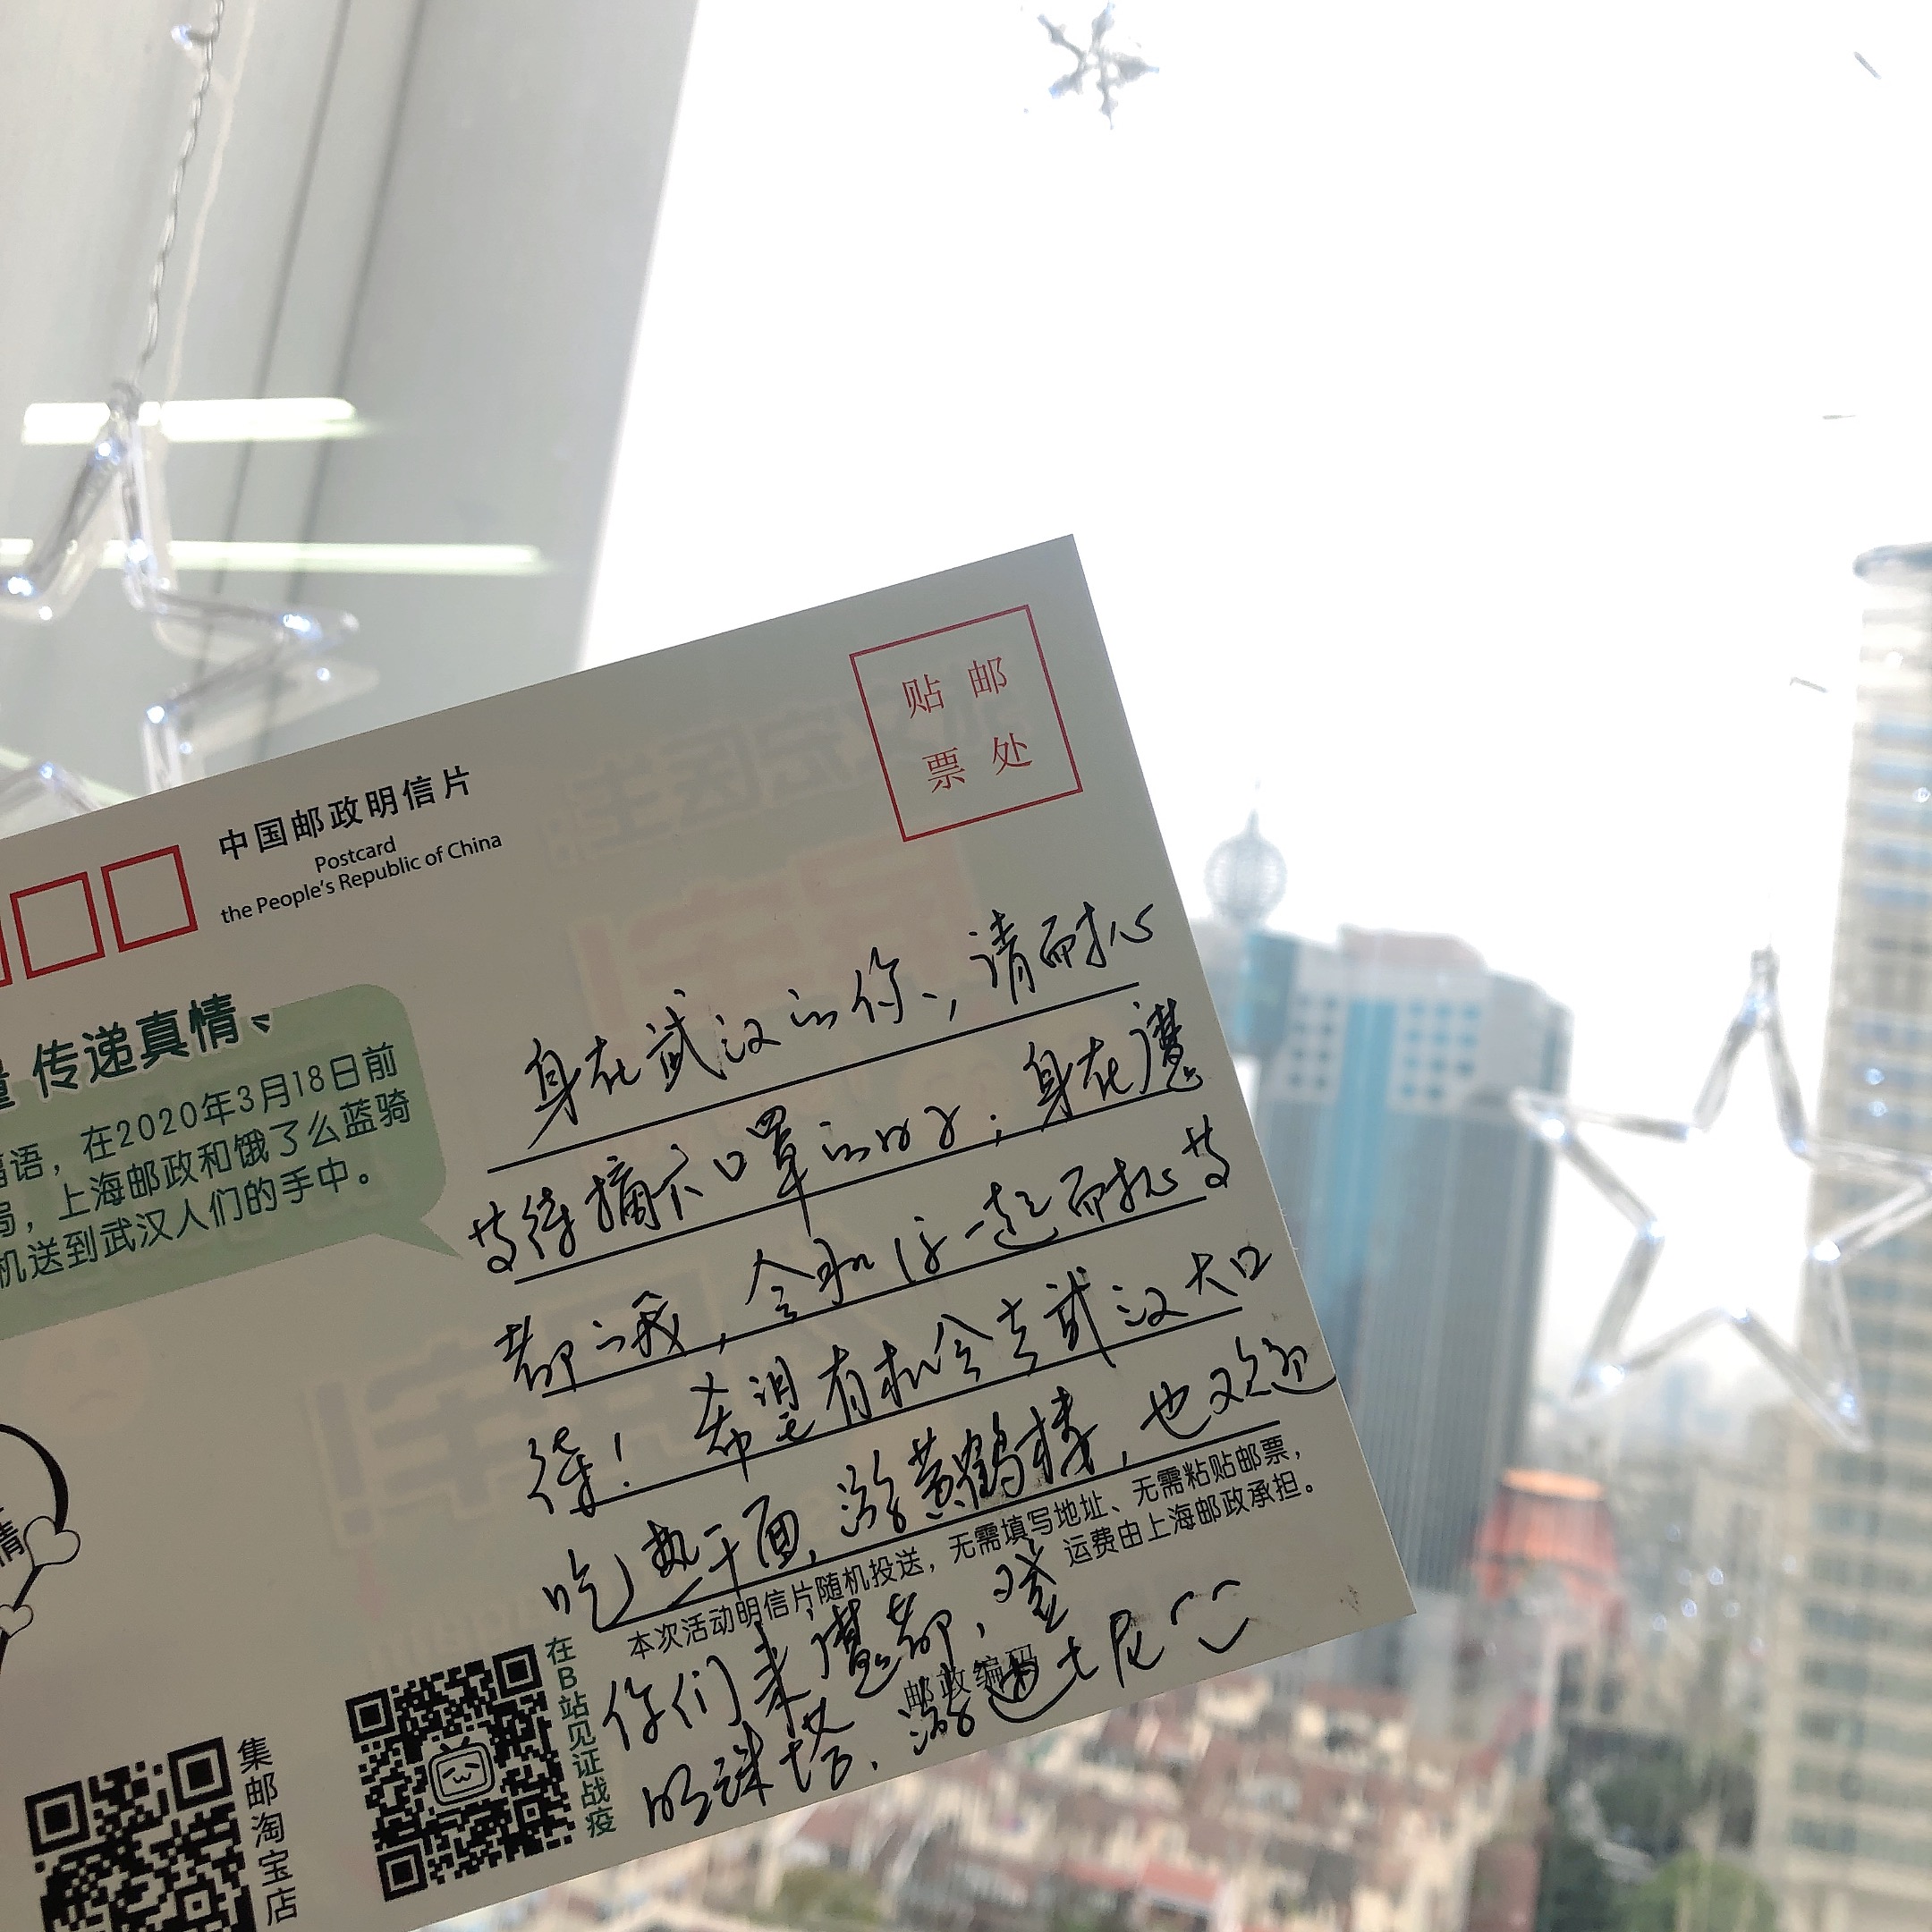 贴邮
票处
中国邮政明信片
Postcard
the People's Republic of China
传递真情、
福语，在2020年3月18日前
局，上海邮政和饿了么蓝骑
机送到武汉人们的手中。
情
身在武汉的你，请耐心
等待摘下口罩的时分；身在魔
都的我，会和你一起耐心等
待！希望有机会去武汉大口
吃热干面，游黄鹤楼，也欢迎
你们来魔都，登
明珠塔，游迪士尼
本次活动明信片随机投送，无需填写地址、无需粘贴邮票，
运费由上海邮政承担。
邮政编码
在B站见证战疫
集邮淘宝店